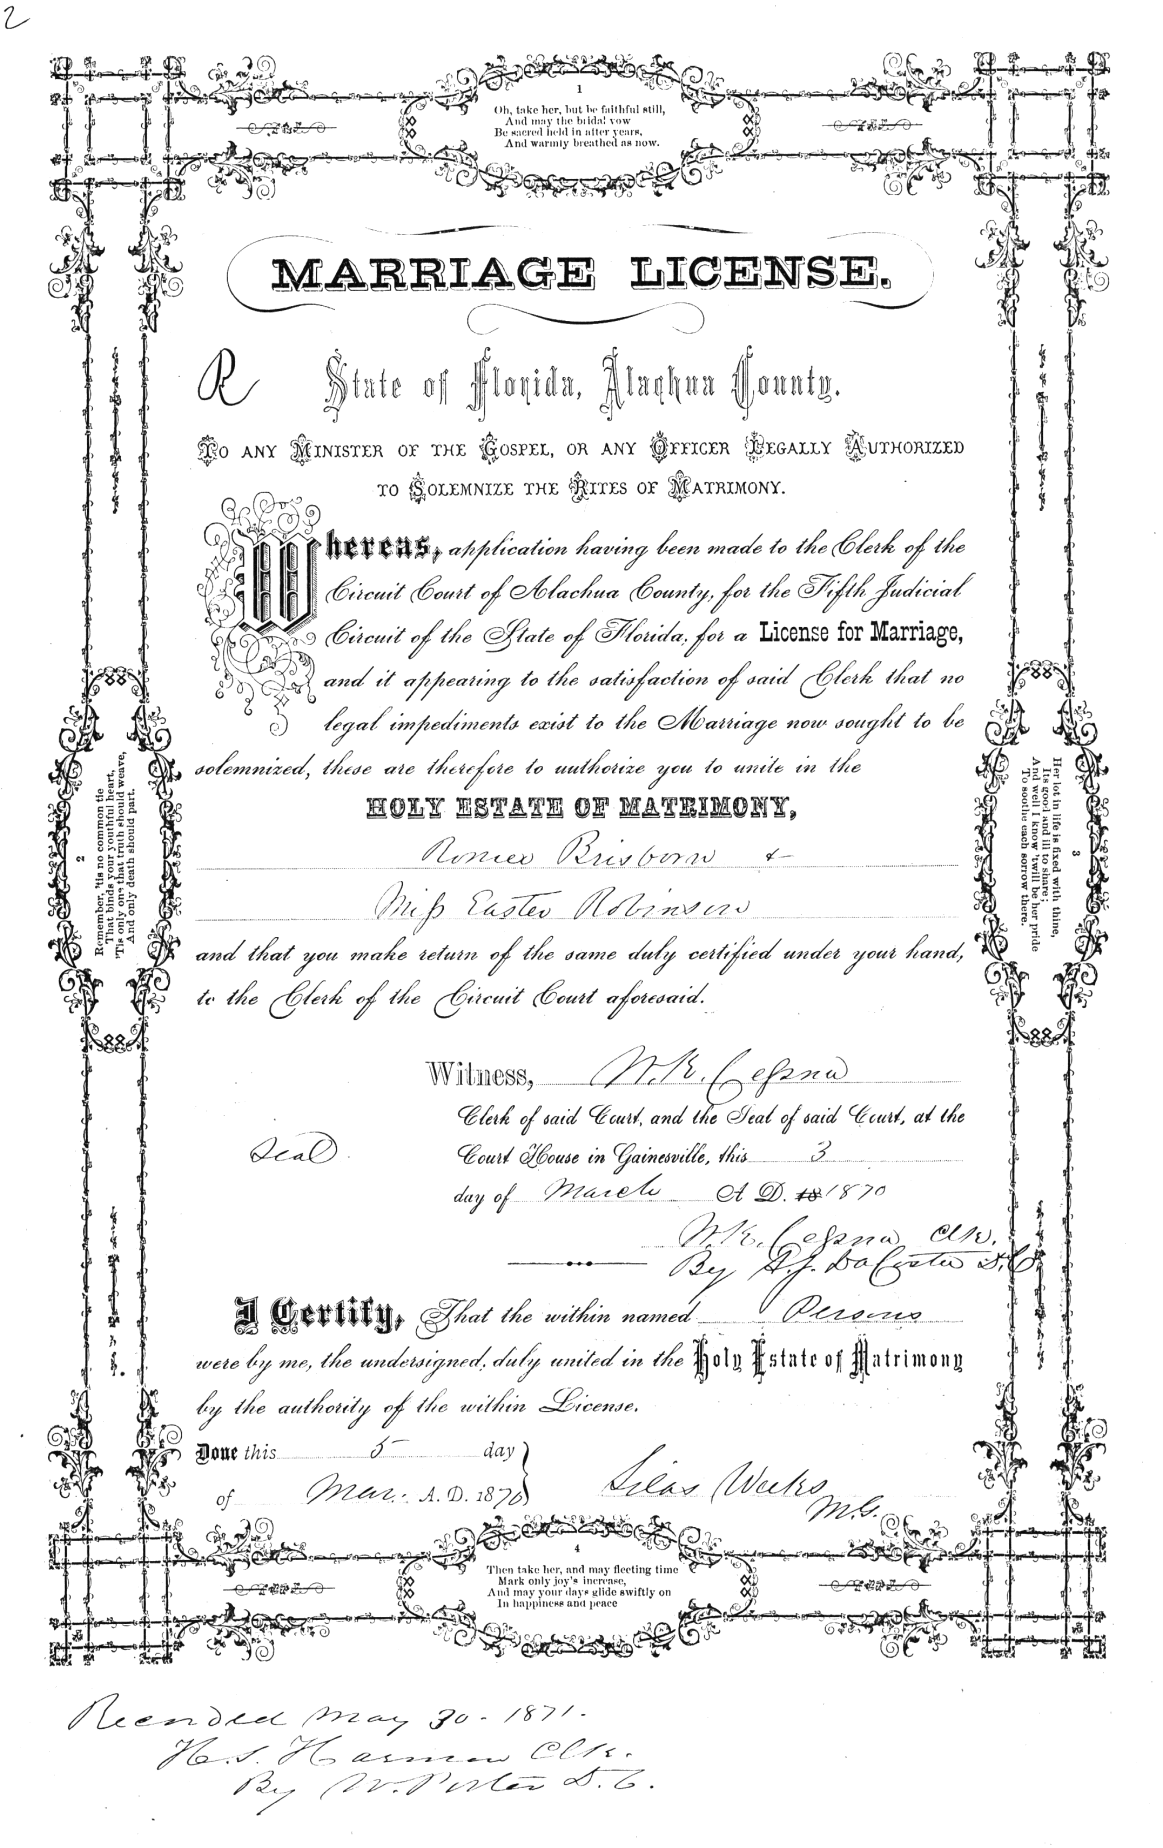 2
1
Oh, take her, but be faithful still,
And may the bridal vow
Be sacred held in after years,
And warmly breathed as now.
MARRIAGE LICENSE.
R
State of Florida, Alachua County.
TO ANY MINISTER OF THE GOSPEL, OR ANY OFFICER LEGALLY AUTHORIZED
TO SOLEMNIZE THE RITES OF MATRIMONY.
Whereas, application having been made to the Clerk of the
Circuit Court of Alachua County, for the Fifth Judicial
Circuit of the State of Florida, for a License for Marriage,
and it appearing to the satisfaction of said Clerk that no
legal impediments exist to the Marriage now sought to be
solemnized, these are therefore to authorize you to unite in the
HOLY ESTATE OF MATRIMONY,
Brisborn &
Miss Easter Robinson
and that you make return of the same duly certified under your hand,
to the Clerk of the Circuit Court aforesaid.
Witness, W. K. Cessna
Clerk of said Court, and the Seal of said Court, at the
Seal Court House in Gainesville, this 3
day of March A D. 18 1870
W. K. Cessna Clk.
By DaCosta D.C.
I Certify, That the within named Persons
were by me, the undersigned, duly united in the Holy Estate of Matrimony
by the authority of the within License.
Done this 5 day
of Mar. A. D. 1870
Silas Weeks
M.G.
2
Remember, 'tis no common tie
That binds your youthful heart,
'Tis only one that truth should weave,
And only death should part.
3
Her lot in life is fixed with thine,
Its good and ill to share;
And well I know 'twill be her pride
To soothe each sorrow there.
4
Then take her, and may fleeting time
Mark only joy's increase,
And may your days glide swiftly on
In happiness and peace
Recorded May 30 - 1871.
H. S. Harmon Clk.
By W. Porter D. C.